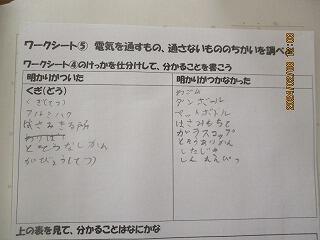 ワークシート⑤ 電気を通すもの、通さないもののちがいを調べ
ワークシート④のけっかを仕分けして、分かることを書こう
明かりがついた
くぎ(どう)
くぎ(てつ)
アルミハク
はさみきる所
とそうなしかん
がびょう(てつ)
明かりがつかなかった
わゴム
ダンボール
ペットボトル
はさみもちて
ガラスコップ
とそうありかん
したじき
しんえんぴつ
上の表を見て、分かることはなにかな